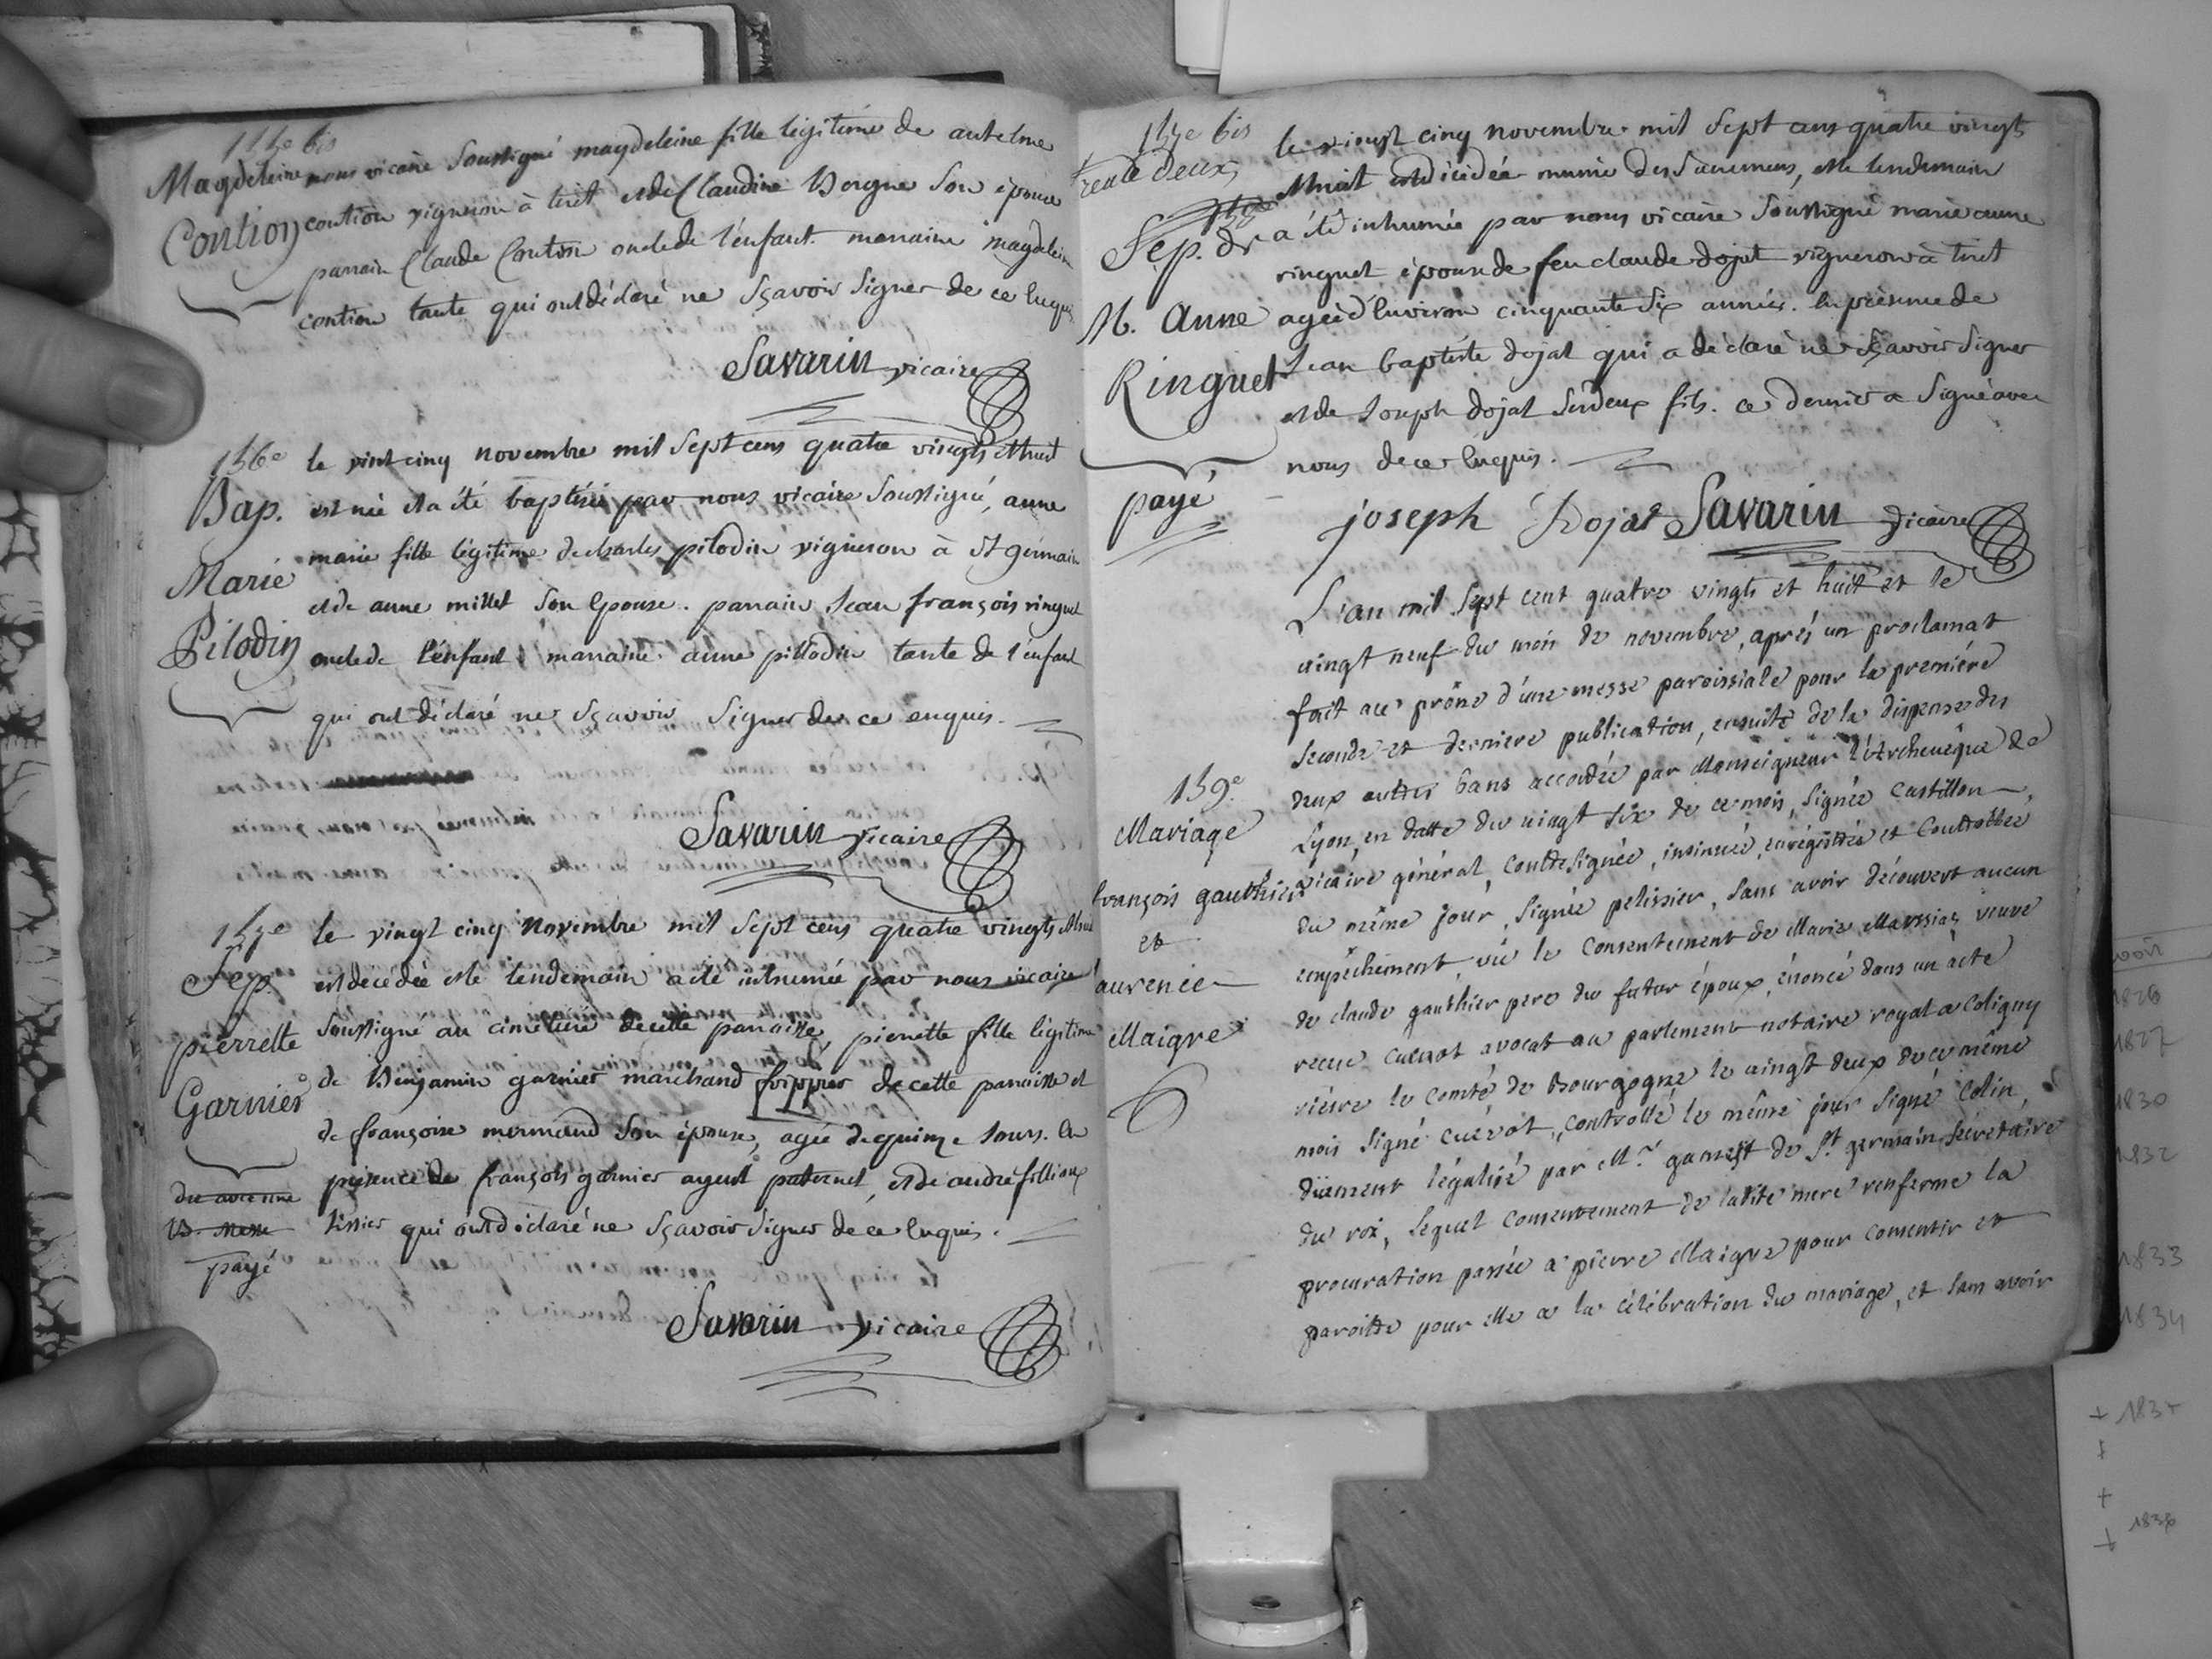 Magdeleine
Contion
nous vicaire soussigné magdeleine fille légitime de antelme
contion vigneron à tiret et de Claudine Borgne son épouse
parrain Claude Contion oncle de l'enfant. marraine magdelein
contion tante qui ont déclaré ne sçavoir signer de ce enquis
Savarin vicaire
156e
Bap.
Marie
Pilodin
le vint cinq novembre mil sept cens quatre vingts et huit
est née et a été baptisée par nous vicaire soussigné, anne
marie fille légitime de charles pilodin vigneron à st germain
et de anne millet son epouse. parrain jean françois ringuet
oncle de l'enfant marraine anne pillodin tante de l'enfant
qui ont déclaré ne sçavoir signer de ce enquis.
Savarin vicaire
157e
Sep.
pierrette
Garnier
payé
le vingt cinq novembre mil sept cens quatre vingts et huit
est décédée et le lendemain a été inhumée par nous vicaire
soussigné au cimetiere de cette parroisse, pierrette fille légitime
de Benjamin garnier marchand frippier de cette parroisse et
de françoise mermand son épouse, agée de quinze jours. en
présence de françois garnier ayeul paternel, et de andré fillioux
tissier qui ont déclaré ne sçavoir signer de ce enquis.
Savarin vicaire
157e bis
trente deux
Sep. de
M. Anne
Ringuet
payé
le vingt cinq novembre mil sept cens quatre vingts
et huit est décédée munie des sacremens, et le lendemain
a été inhumée par nous vicaire soussigné marie anne
ringuet épouse de feu claude dojat vigneron à tiret
agée d'environ cinquante six années. en présence de
jean baptiste dojat qui a déclaré ne sçavoir signer
et de joseph dojat ses deux fils. ce dernier a signé avec
nous de ce enquis.
joseph Dojat Savarin vicaire
159e
Mariage
françois gauthier
et
Laurence
Maigre
L'an mil sept cent quatre vingts et huit et le
vingt neuf du mois de novembre, après un proclamat
fait au prône d'une messe paroissiale pour la première
seconde et derniere publication, ensuite de la dispense des
deux autres bans accordée par Monseigneur l'Archevêque de
Lyon, en datte du vingt six de ce mois, signée Castillon
vicaire général, contresignée, insinuée, enregistrée et Controllée
du même jour, signée pelissier, sans avoir découvert aucun
empêchement, vu le consentement de Marie Marssiaz veuve
de claude gauthier pere du futur époux, énoncé dans un acte
receu cuenot avocat au parlement notaire royal a Coligny
rière le comté de Bourgogne le vingt deux de ce même
mois signé cuenot, controllé le même jour signé Colin,
duement légalisé par Mr. de St germain secrétaire
du roi, lequel consentement de ladite mere renferme la
procuration passée a pierre Maigre pour consentir et
paroitre pour elle a la célébration du mariage, et sans avoir
1826
1827
1830
1832
1833
1834